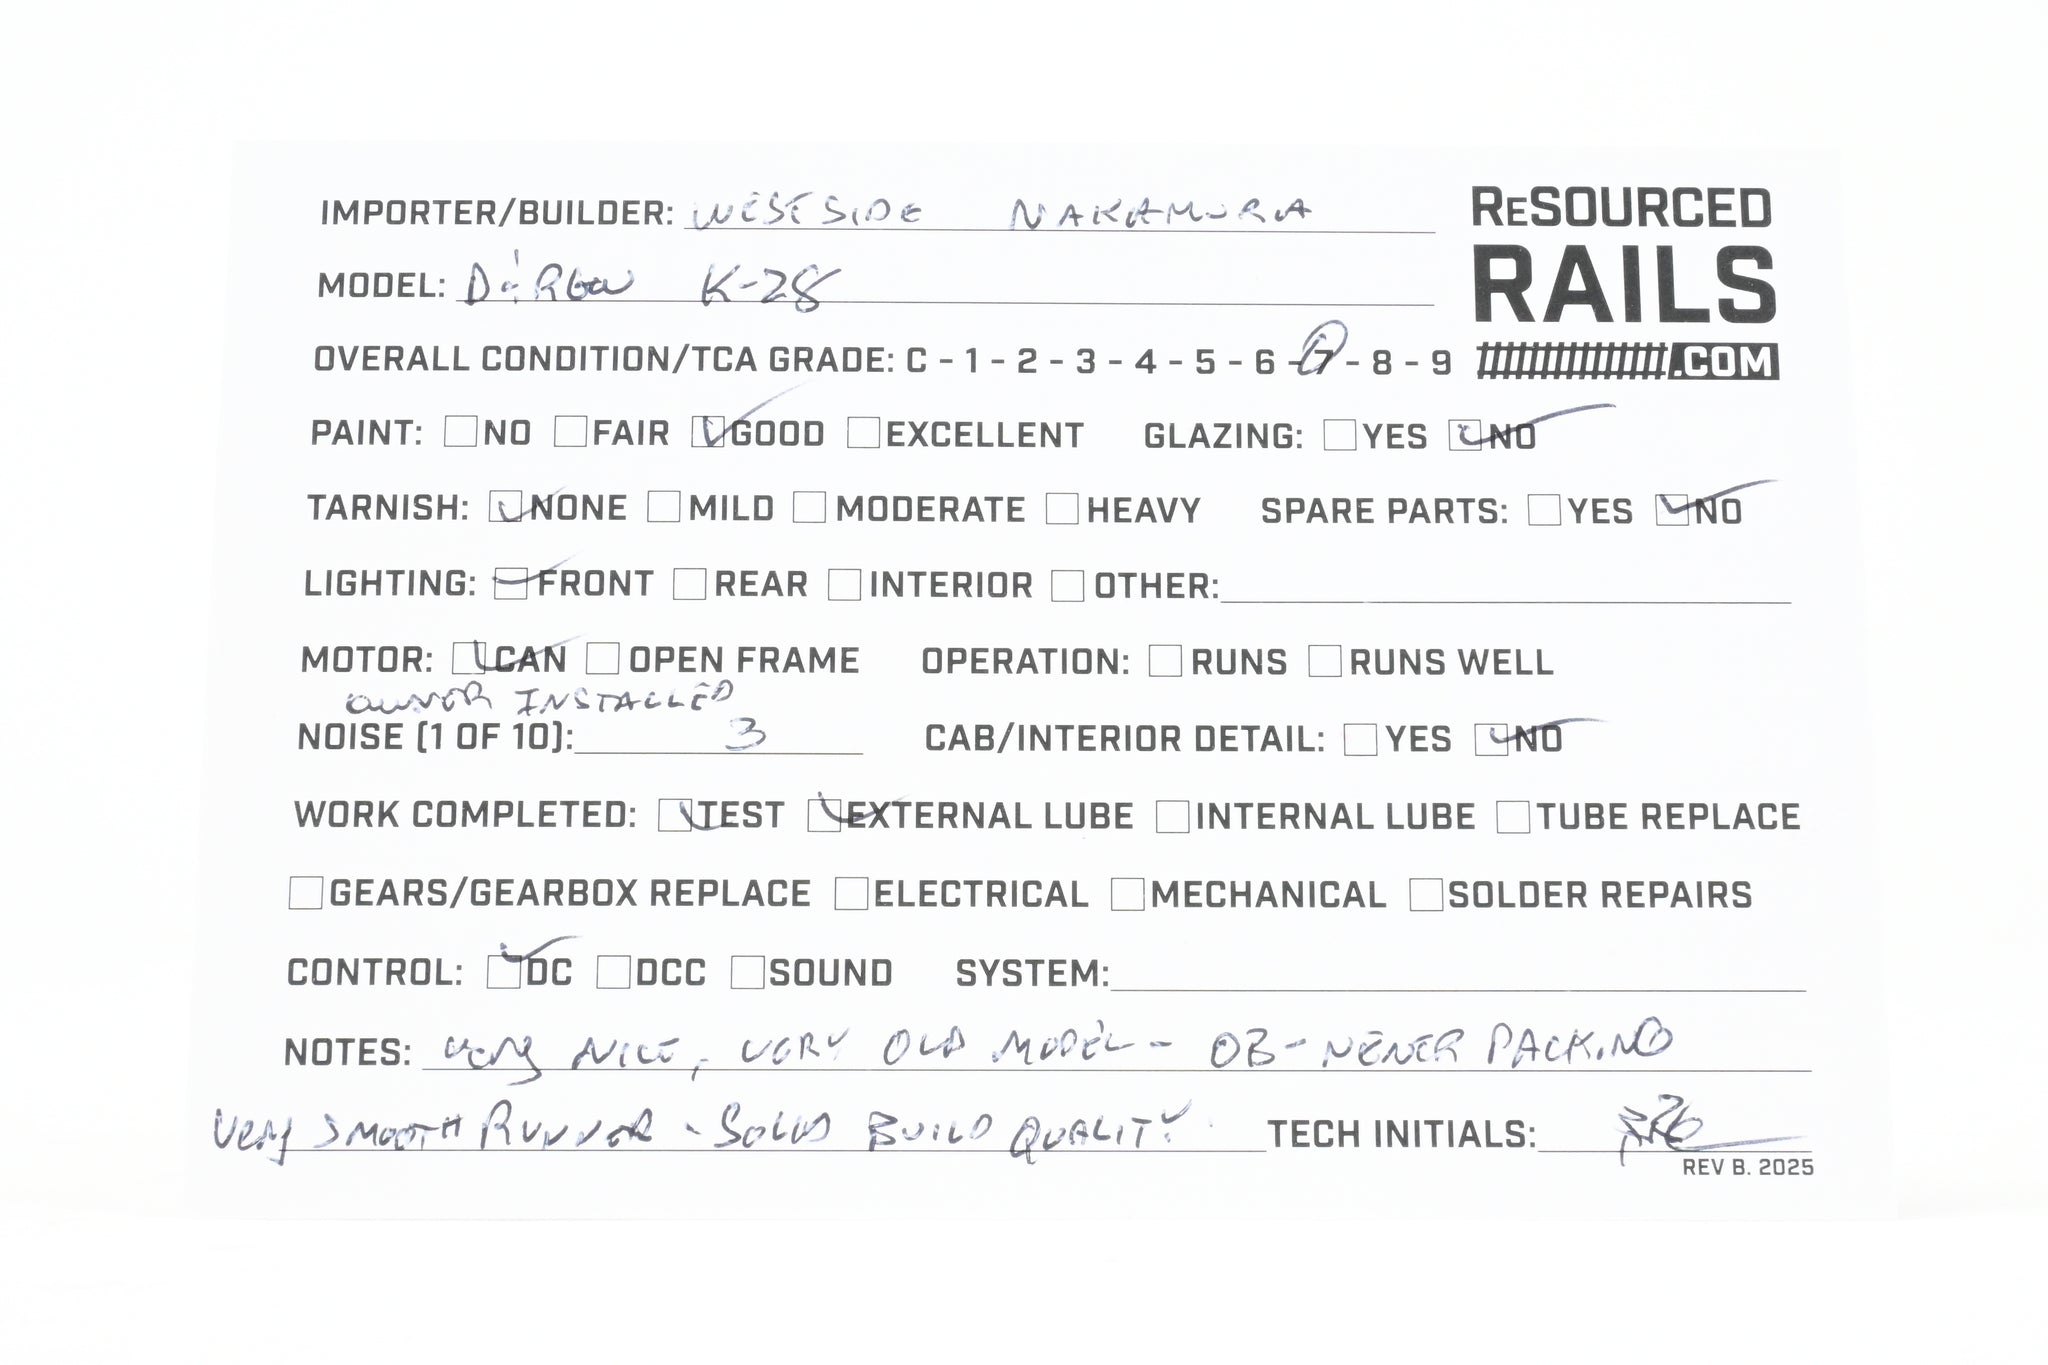 IMPORTER/BUILDER: WESTSIDE NAKAMURA
RESOURCED
RAILS
.COM
MODEL: D&RGW K-28
OVERALL CONDITION/TCA GRADE: C - 1 - 2 - 3 - 4 - 5 - 6 - 7 - 8 - 9
PAINT: NO FAIR GOOD EXCELLENT GLAZING: YES NO
TARNISH: NONE MILD MODERATE HEAVY SPARE PARTS: YES NO
LIGHTING: FRONT REAR INTERIOR OTHER:
MOTOR: CAN OPEN FRAME OPERATION: RUNS RUNS WELL
OWNER INSTALLED
NOISE (1 OF 10): 3 CAB/INTERIOR DETAIL: YES NO
WORK COMPLETED: TEST EXTERNAL LUBE INTERNAL LUBE TUBE REPLACE
GEARS/GEARBOX REPLACE ELECTRICAL MECHANICAL SOLDER REPAIRS
CONTROL: DC DCC SOUND SYSTEM:
NOTES: VERY NICE, VERY OLD MODEL - OB - NEWER PACKING
VERY SMOOTH RUNNER - SOLID BUILD QUALITY TECH INITIALS:
REV B. 2025